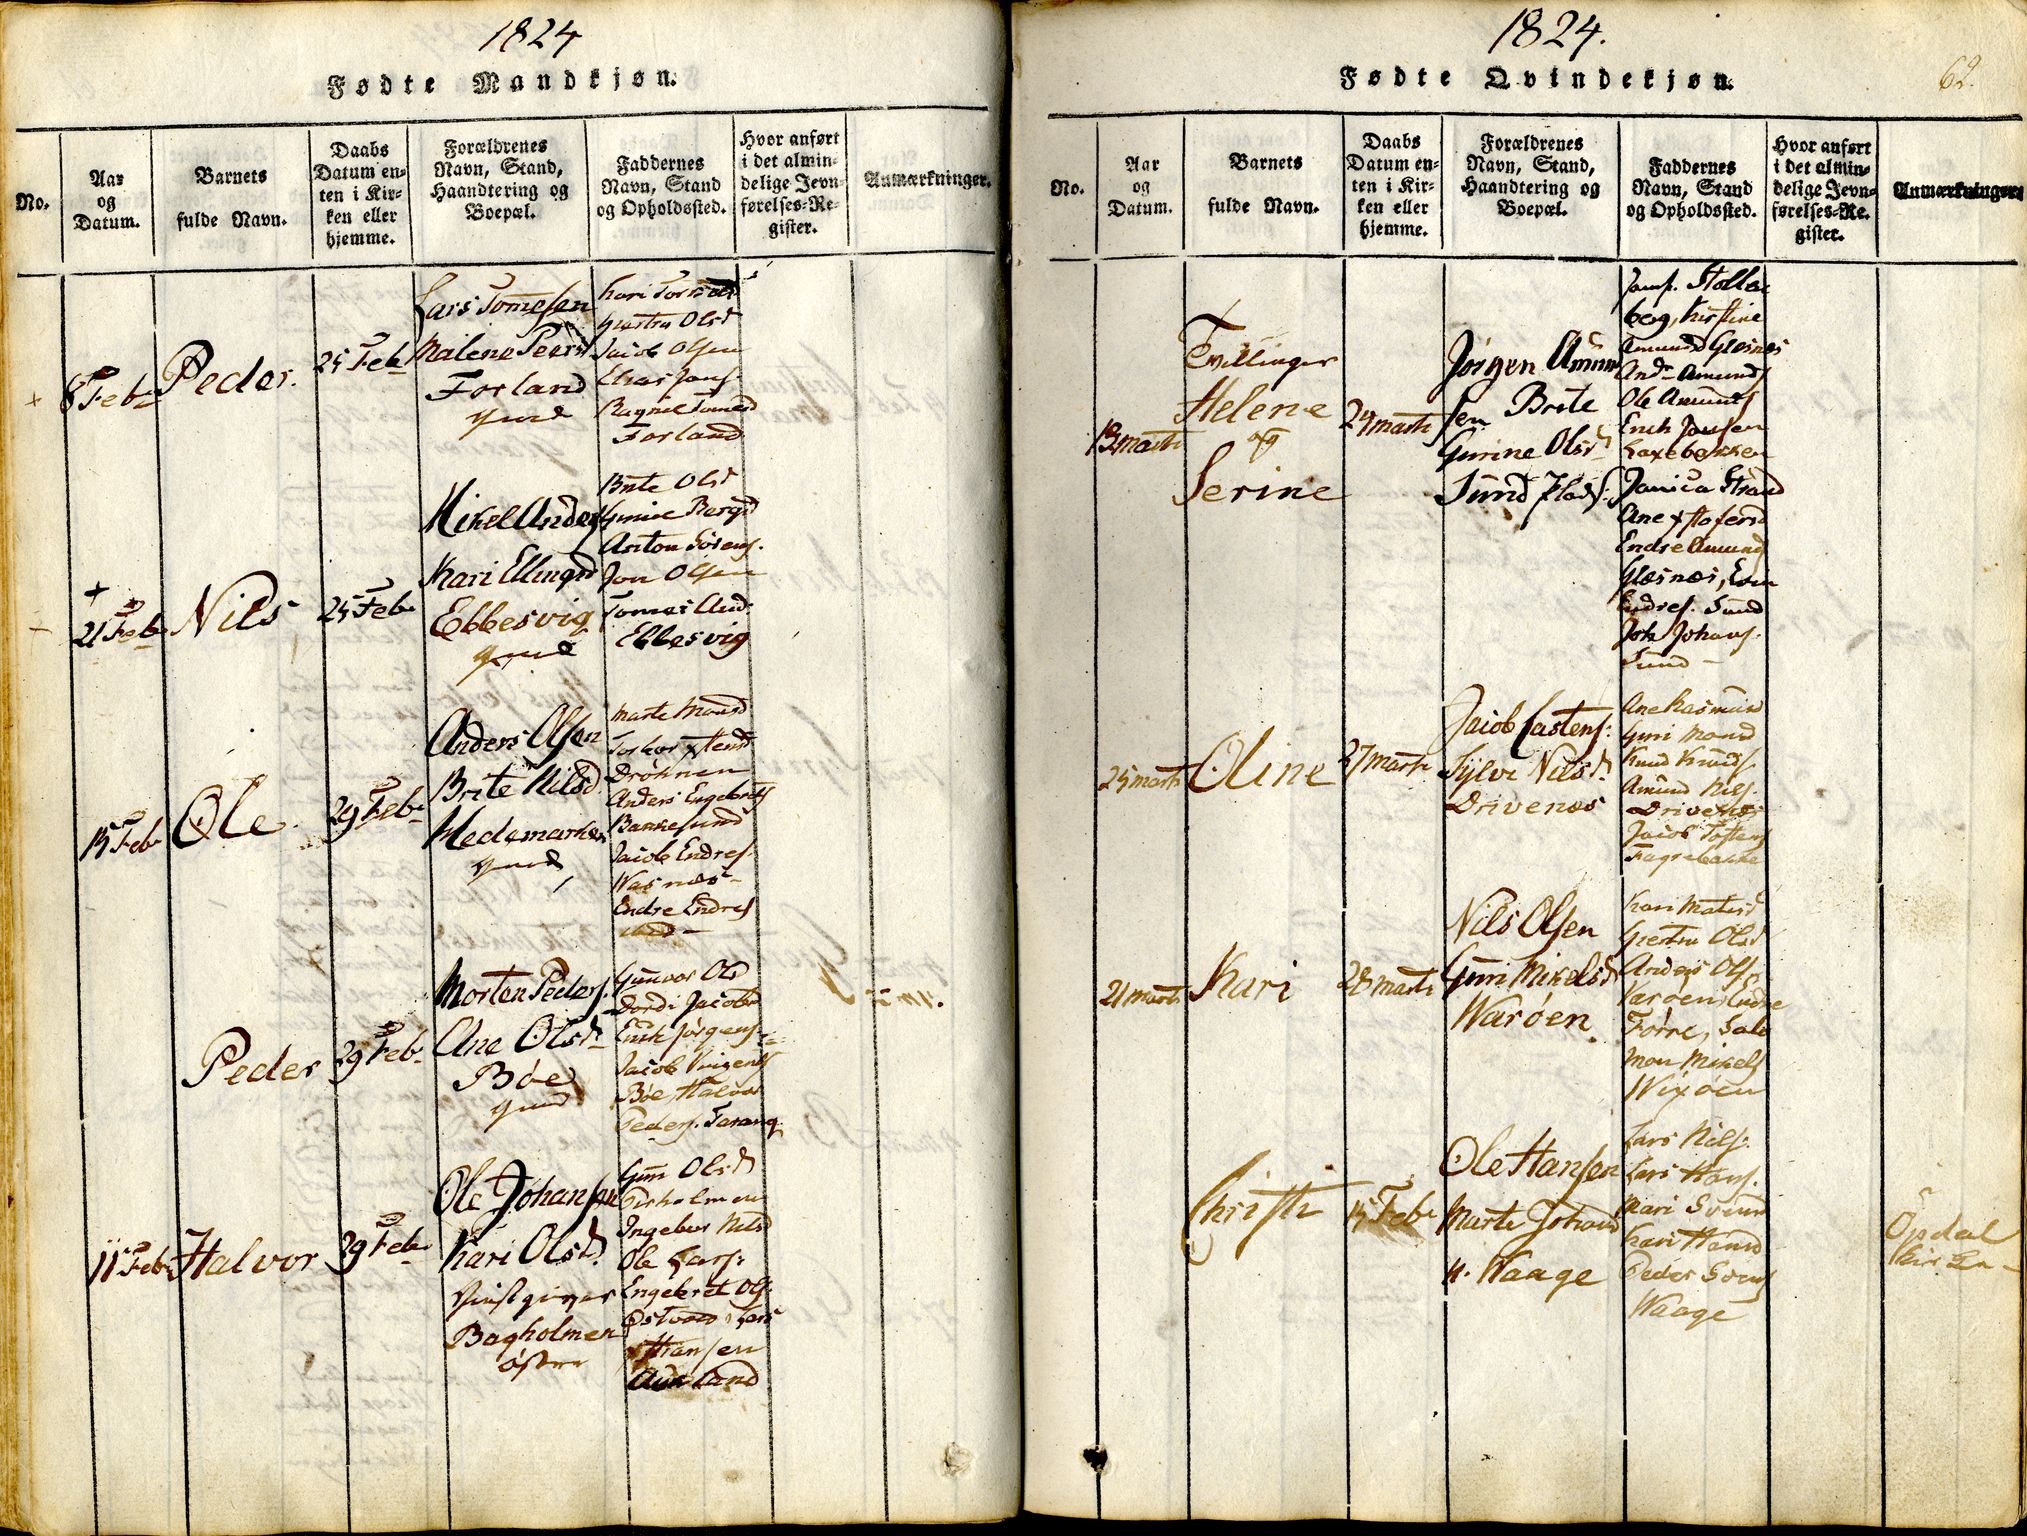 1824
Fødte Mandkjøn.
No.
Aar
og
Datum.
Barnets
fulde Navn.
Daabs
Datum en-
ten i Kir-
ken eller
hjemme.
Forældrenes
Navn, Stand,
Haandtering og
Boepæl.
Faddernes
Navn, Stand
og Opholdssted.
Hvor anført
i det almin-
delige Jevn-
førelses-Re-
gister.
Anmærkninger.
8 Feb
Peder.
25 Feb
Lars Tomesen
Malene Peersd
Forland
gmd
Kari
Giertru Olsd
Jacob Olsen
Elias Jans.
Ragnele Tomesd
Forland
21 Feb
Nils
25 Feb
Mikel Anders
Kari Ellingsd
Ebbesvig
gmd
Brite Olsd
Gurine Bergsd
Anton Sörens.
Jon Olsen
Tomes And.
Ebbesvig
15 Feb
Ole
29 Feb
Anders Olsen
Brite Nilsd
Medemarken
gmd
Marte Monsd
Dröhnen
Anders Engebrets
Bakkesund
Jacob Endres.
Wasnæs
Endre Endres
Peder
29 Feb
Morten Peders.
Ane Olsd
Böe
gmd
Gunvor Olsd
Dordi Jacobs
Erik Jörgens.
Jacob
Böe, Halvor
Peders. Tarang
11 Feb
Halvor
29 Feb
Ole Johansen
Kari Olsd.
Bagholmen
östre
Guri Olsd
Ingebor Nilsd
Ole Lars.
Engebret Ols.
Östvold Lars
Hansen
Aadland
1824.
62.
Fødte Qvindekjøn.
No.
Aar
og
Datum.
Barnets
fulde Navn.
Daabs
Datum en-
ten i Kir-
ken eller
hjemme.
Forældrenes
Navn, Stand,
Haandtering og
Boepæl.
Faddernes
Navn, Stand
og Opholdssted.
Hvor anført
i det almin-
delige Jevn-
førelses-Re-
gister.
Anmærkninger
13 marti
Tvillinger
Helene
og
Serine
24 marti
Jörgen Amun
sen Brite
Gurine Olsd
Sund Plads.
Jomf. Stollen
berg, Kirstine
Amunds Glesnæs
And. Amunds
Ole Amunds
Erich Jonsen
Laxebakken
Janica Strand
Ane
Endre Amunds
Glæsnæs, Even
Endres. Sund
Joh Johans.
Sund
25 marti
Oline
27 marti
Jacob Castens.
Sylvi Nilsd.
Drivenæs
Ane Rasmusd
Guri Monsd
Knud Knuds
Amund Nils.
Drivenæs
Jacob
Fagrebakke
21 marti
Kari
28 marti
Nils Olsen
Guri Mikelsd
Waröen
Kari Matisd
Giertru Olsd
Anders Ols.
Varöen, Endre
Förre, Salo
mon Mikels
Wixöen
Christi
15 Feb
Ole Hansen
Marte Johansd
n. Waage
Lars Nils.
Lars Hans.
Mari Svensd
Kari Hansd
Peder Svens
Waage
Opdal